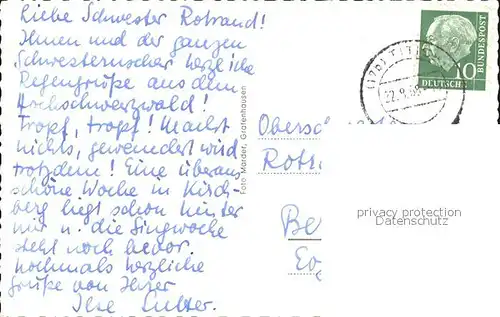 Liebe Schwester Rotraud!
Ihnen und der ganzen
Schwesternschar herzliche
Regengrüße aus dem
Hochschwarzwald!
Tropf, tropf! Macht
nichts, gewendert wird
trotzdem! Eine überaus
schöne Woche in Kirch-
berg liegt schon hinter
mir u. die Singwoche
steht noch bevor.
Nochmals herzliche
Grüße von Ihrer
Ilse
Foto Marder, Grafenhausen
DEUTSCHE
BUNDESPOST
10
(17b) TITI
22.9.58
Obersch
Rotra
Be
Ev
privacy protection
Datenschutz